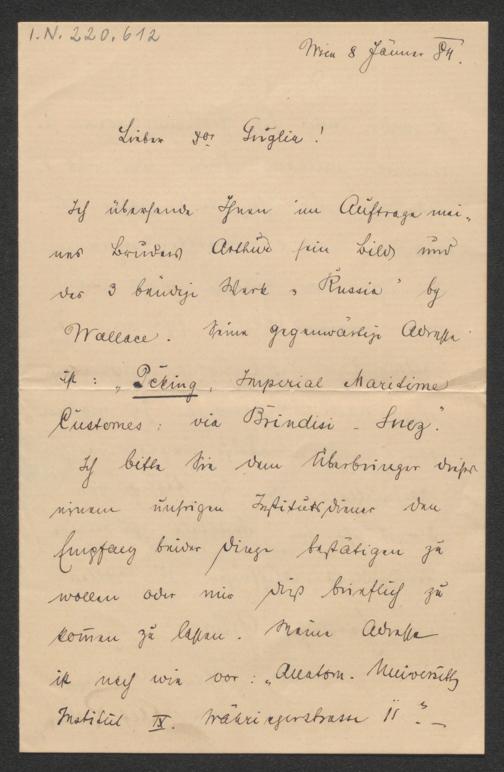 I.N. 220.612
Wien 8 Jänner 84.
Lieber Dor Guglia!
Ich übersende Ihnen im Auftrage mei-
nes Bruders Arthur sein Bild und
das 3 bändige Werk „Russia" by
Wallace. Seine gegenwärtige Adresse
ist: „Péking, Imperial Maritime
Customes: via Brindisi - Suez."
Ich bitte Sie dem Überbringer dieses
einem unsrigen Institutsdiener den
Empfang beider Dinge bestätigen zu
wollen oder mir dies brieflich zu
kommen zu lassen. Meine Adresse
ist nach wie vor: „Anatom. Universitts
Institut IX. Währingerstrasse 11".-